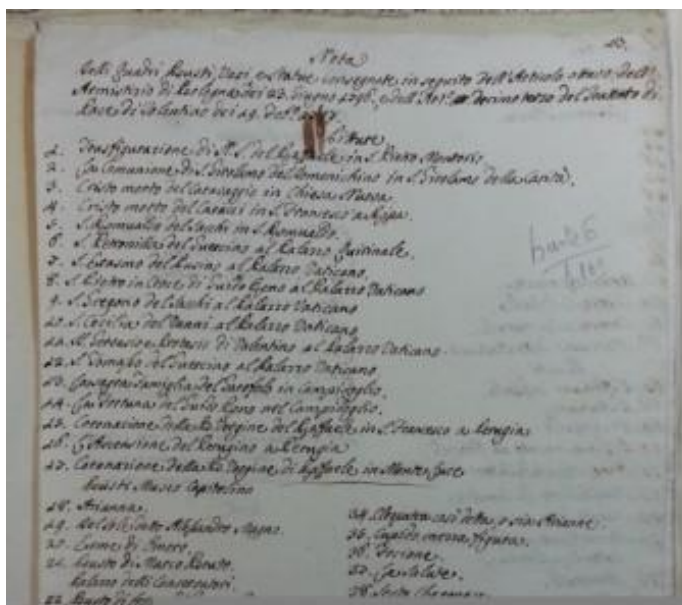 Nota
delli Quadri, Busti, Vasi, e Statue consegnate in seguito dell'Articolo ottavo dell'
Armistizio di Bologna dei 23. Giugno 1796, e dell'Art.º decimoterzo del Trattato di
Pace di Tolentino dei 19.
Pitture
1. Trasfigurazione di N. S. del Raffaele in S. Pietro Montorio
2. La Comunione di S. Girolamo del Domenichino in S. Girolamo della Carità.
3. Cristo morto del Caravaggio in Chiesa Nuova
4. Cristo morto del Caracci in S. Francesco a Ripa.
5. S. Romualdo del Sacchi in S. Romualdo.
6. S. Petronilla del Guercino al Palazzo Quirinale.
7. S. Erasmo del Pusino al Palazzo Vaticano.
8. S. Pietro in Croce di Guido Reno al Palazzo Vaticano
9. S. Gregorio del Sacchi al Palazzo Vaticano
10. S. Cecilia del Vanni al Palazzo Vaticano
11. S. e di Valentino al Palazzo Vaticano
12. S. del Guercino al Palazzo Vaticano
13. Famiglia del in Campidoglio.
14. La Fortuna di Guido Reno nel Campidoglio.
15. Coronazione della B. Vergine del Raffaele in S. Francesco a Perugia
16. L'Ascensione del Perugino a Perugia
17. Coronazione della B. Vergine di Raffaele in Monte Luce
Busti Museo Capitolino
18. Arianna.
19. Alessandro Magno.
20. Erme di Omero.
21. Busto di Marco Bruto.
Palazzo delli Conservatori.
22. Busto di
34. Cleopatra così detta, o sia Arianna.
35.
36.
37. La Salute.
38.